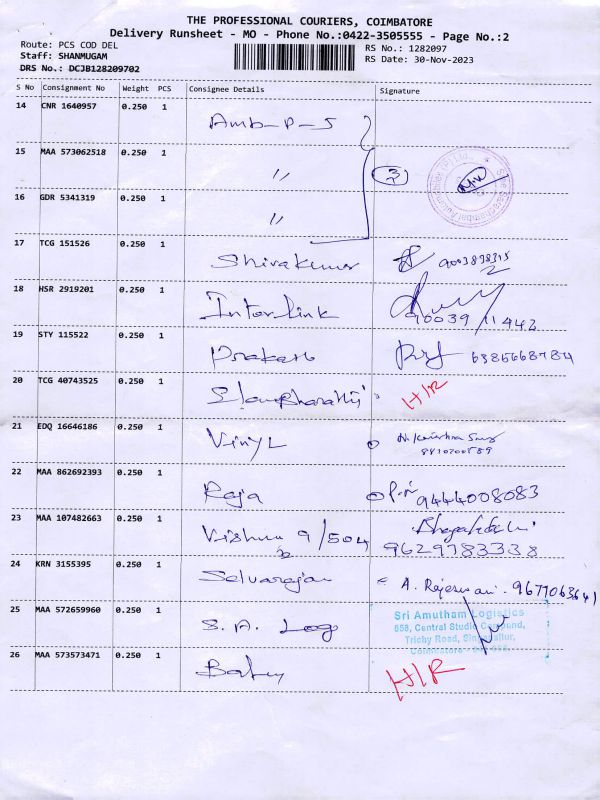 THE PROFESSIONAL COURIERS, COIMBATORE
Delivery Runsheet - MO - Phone No.:0422-3505555 - Page No.:2
Route: PCS COD DEL
RS No.: 1282097
Staff: SHANMUGAM
RS Date: 30-Nov-2023
DRS No.: DCJB128209702
S No Consignment No Weight PCS Consignee Details Signature
14 CNR 1640957 0.250 1 Amb-P-S
15 MAA 573062518 0.250 1 〃 3
16 GDR 5341319 0.250 1 〃
17 TCG 151526 0.250 1 Shivakumar
18 HSR 2919201 0.250 1 Interlink 90039 11442
19 STY 115522 0.250 1 Prakash 6385668784
20 TCG 40743525 0.250 1 Elambharathi H/R
21 EDQ 16646186 0.250 1 Vinyl
22 MAA 862692393 0.250 1 Raja 9444008083
23 MAA 107482663 0.250 1 Vishnu 9/504 9629783338
24 KRN 3155395 0.250 1 Selvarajan A. Rajeswari. 9677063641
25 MAA 572659960 0.250 1 S.A. Log
Sri Amutham Logistics
658, Central Studio Compound,
Trichy Road, Singanallur,
Coimbatore
26 MAA 573573471 0.250 1 H/R